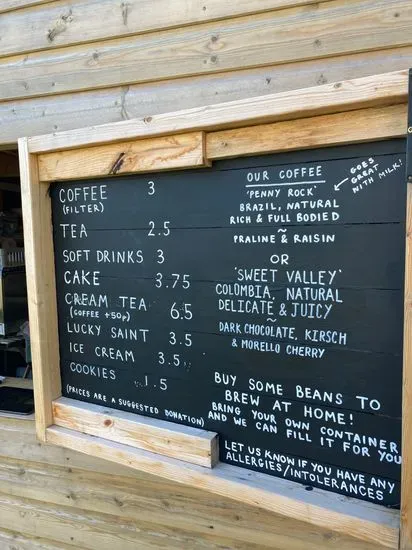 COFFEE 3
(FILTER)
TEA 2.5
SOFT DRINKS 3
CAKE 3.75
CREAM TEA 6.5
(COFFEE +50p)
LUCKY SAINT 3.5
ICE CREAM 3.5
COOKIES 1.5
(PRICES ARE A SUGGESTED DONATION)
OUR COFFEE
'PENNY ROCK'
GOES
GREAT
WITH MILK!
BRAZIL, NATURAL
RICH & FULL BODIED
~
PRALINE & RAISIN
OR
'SWEET VALLEY'
COLOMBIA, NATURAL
DELICATE & JUICY
~
DARK CHOCOLATE, KIRSCH
& MORELLO CHERRY
BUY SOME BEANS TO
BREW AT HOME!
BRING YOUR OWN CONTAINER
AND WE CAN FILL IT FOR YOU
LET US KNOW IF YOU HAVE ANY
ALLERGIES/INTOLERANCES